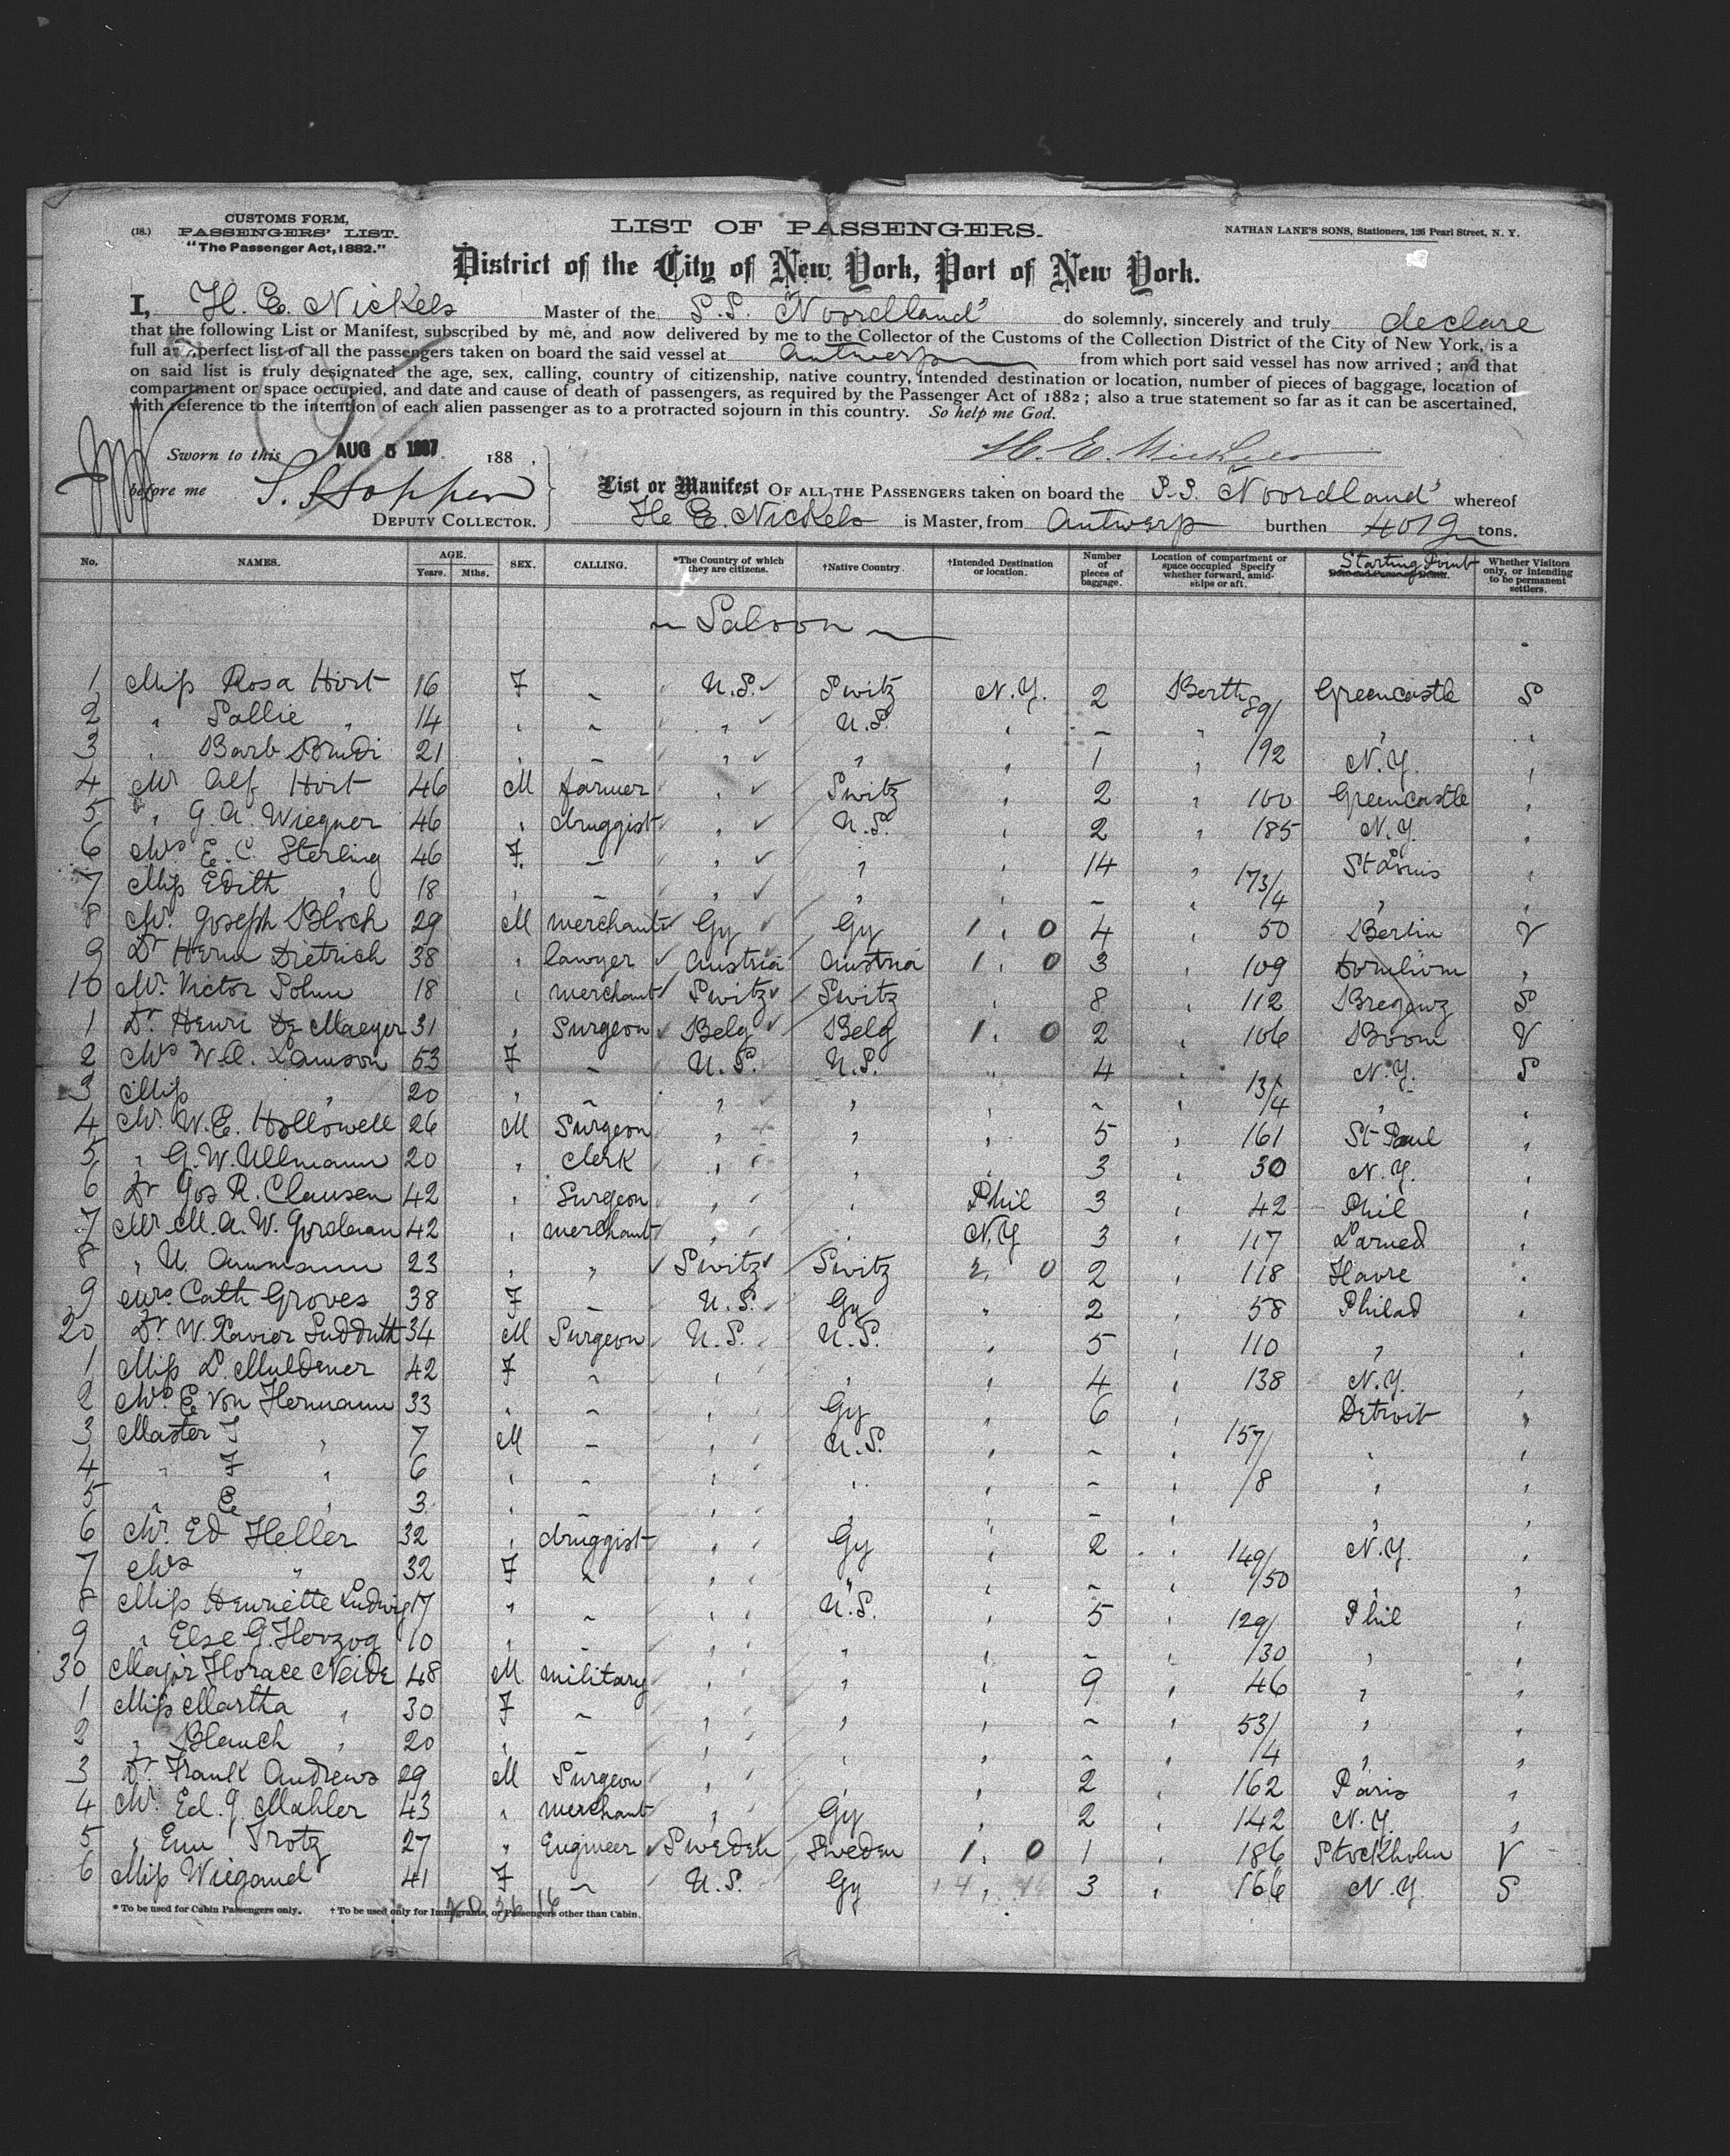 CUSTOMS FORM,
(18.) PASSENGERS' LIST.
"The Passenger Act, 1882."
LIST OF PASSENGERS.
NATHAN LANE'S SONS, Stationers, 126 Pearl Street, N. Y.
District of the City of New York, Port of New York.
I, H. E. Nickels Master of the S.S. "Noordland" do solemnly, sincerely and truly declare
that the following List or Manifest, subscribed by me, and now delivered by me to the Collector of the Customs of the Collection District of the City of New York, is a
full a perfect list of all the passengers taken on board the said vessel at Antwerp from which port said vessel has now arrived; and that
on said list is truly designated the age, sex, calling, country of citizenship, native country, intended destination or location, number of pieces of baggage, location of
compartment or space occupied, and date and cause of death of passengers, as required by the Passenger Act of 1882; also a true statement so far as it can be ascertained,
with reference to the intention of each alien passenger as to a protracted sojourn in this country. So help me God.
Sworn to this AUG 5 1887 188 .
H. E. Nickels
before me S. Hoppen
DEPUTY COLLECTOR.
List or Manifest OF ALL THE PASSENGERS taken on board the S.S. Noordland" whereof
H. E. Nickels is Master, from Antwerp burthen 4019 tons.
No. NAMES. AGE. Years. Mths. SEX. CALLING. *The Country of which they are citizens. †Native Country. †Intended Destination or location. Number of pieces of baggage. Location of compartment or space occupied Specify whether forward, amid-ships or aft. Starting Point Whether Visitors only, or intending to be permanent settlers.
~ Saloon ~
1 Miss Rosa Hirt 16 F - U.S. Switz N.Y. 2 Berth 89/ Greencastle S
2 " Sallie " 14 " - " U.S. " - " " "
3 " Barb Brudi 21 " - " " " 1 " /92 N.Y. "
4 Mr Alf Hirt 46 M farmer " Switz " 2 " 100 Greencastle "
5 " G. A. Wiegner 46 " druggist " U.S. " 2 " 185 N.Y. "
6 Mrs E. C. Sterling 46 F - " " " 14 " 173/ St Louis "
7 Miss Edith " 18 " - " " " - " /4 " "
8 Mr. Joseph Bloch 29 M merchant Gy Gy 1 . 0 4 " 50 Berlin V
9 Dr Herm Dietrich 38 " lawyer Austria Austria 1 . 0 3 " 109 Dornbirn "
10 Mr. Victor Sohm 18 " merchant Switz Switz " 8 " 112 Bregenz S
1 Dr. Henri De Maeyer 31 " Surgeon Belg Belg 1 . 0 2 " 106 Boom V
2 Mrs W. A. Lamson 53 F - U.S. U.S. " 4 " 13/ N.Y. S
3 Miss " 20 " - " " " - " /4 " "
4 Mr. W. E. Hollowell 26 M Surgeon " " " 5 " 161 St Paul "
5 " G. W. Ullmann 20 " Clerk " " " 3 " 30 N.Y. "
6 Dr Jos R. Clausen 42 " Surgeon " " Phil 3 " 42 Phil "
7 Mr M. A. W. 42 " merchant " " N.Y 3 " 117 Larned "
8 " U. Ammann 23 " " Switz Switz 2 . 0 2 " 118 Havre "
9 Mrs Cath Groves 38 F - U.S. Gy " 2 " 58 Philad "
20 Dr W. Xavier Sudduth 34 M Surgeon U.S. U.S. " 5 " 110 " "
1 Miss L. Muldener 42 F - " " " 4 " 138 N.Y. "
2 Mrs E von Hermann 33 " - " Gy " 6 " Detroit "
3 Master J " 7 M - " U.S. " - " 157/ " "
4 " F " 6 " - " " " - " /8 " "
5 " E " 3 " - " " " - " " "
6 Mr. Ed Heller 32 " druggist " Gy " 2 " 149/ N.Y. "
7 Mrs " 32 F - " " " - " /50 " "
8 Miss Henriette Ludwig 17 " - " U.S. " 5 " 129/ Phil "
9 " Else G. Herzog 10 " - " " " - " /30 " "
30 Major Horace Neide 48 M military " " " 9 " 46 " "
1 Miss Martha " 30 F - " " " - " 53/ " "
2 " Blanch " 20 " - " " " - " /4 " "
3 Dr. Frank Andrews 29 M Surgeon " " " 2 " 162 Paris "
4 Mr. Ed. J. Mahler 43 " merchant " Gy " 2 " 142 N.Y. "
5 " Trotz 27 " Engineer Sweden Sweden 1 . 0 1 " 186 Stockholm V
6 Miss Wiegand 41 F - U.S. Gy " 3 " 166 N.Y. S
* To be used for Cabin Passengers only. † To be used only for Immigrants, or Passengers other than Cabin.